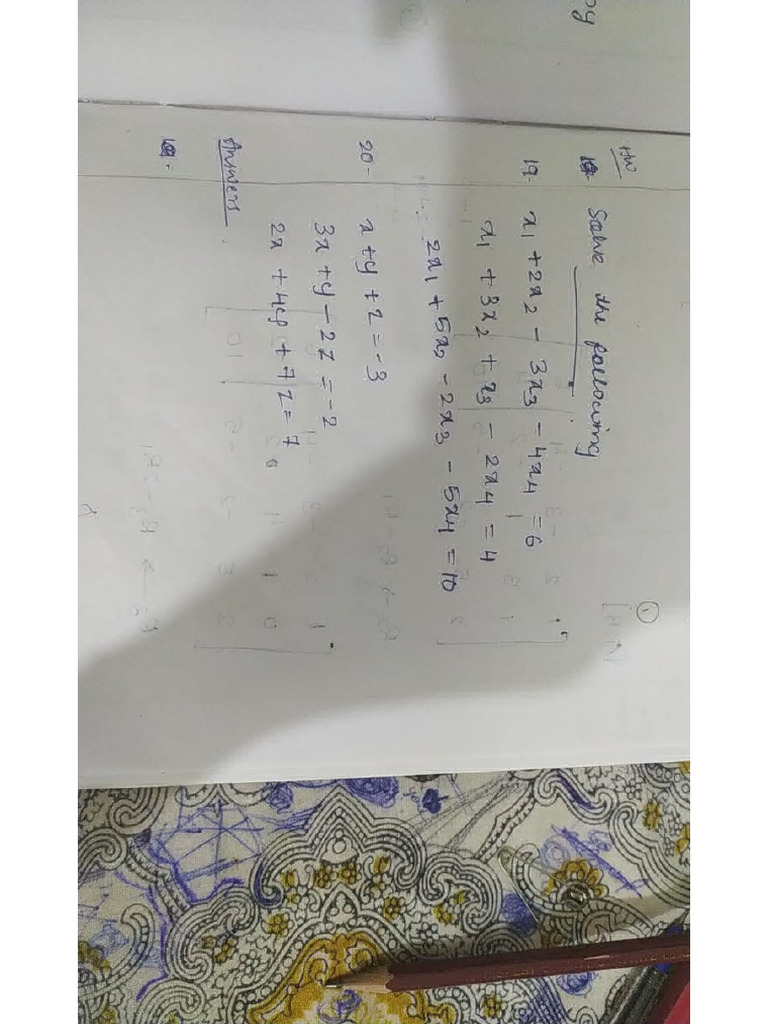 HW
Solve the following
19. x₁ + 2x₂ - 3x₃ - 4x₄ = 6
x₁ + 3x₂ + x₃ - 2x₄ = 4
2x₁ + 5x₂ - 2x₃ - 5x₄ = 10
20. x + y + z = -3
3x + y - 2z = -2
2x + 4y + 7z = 7
Answers.